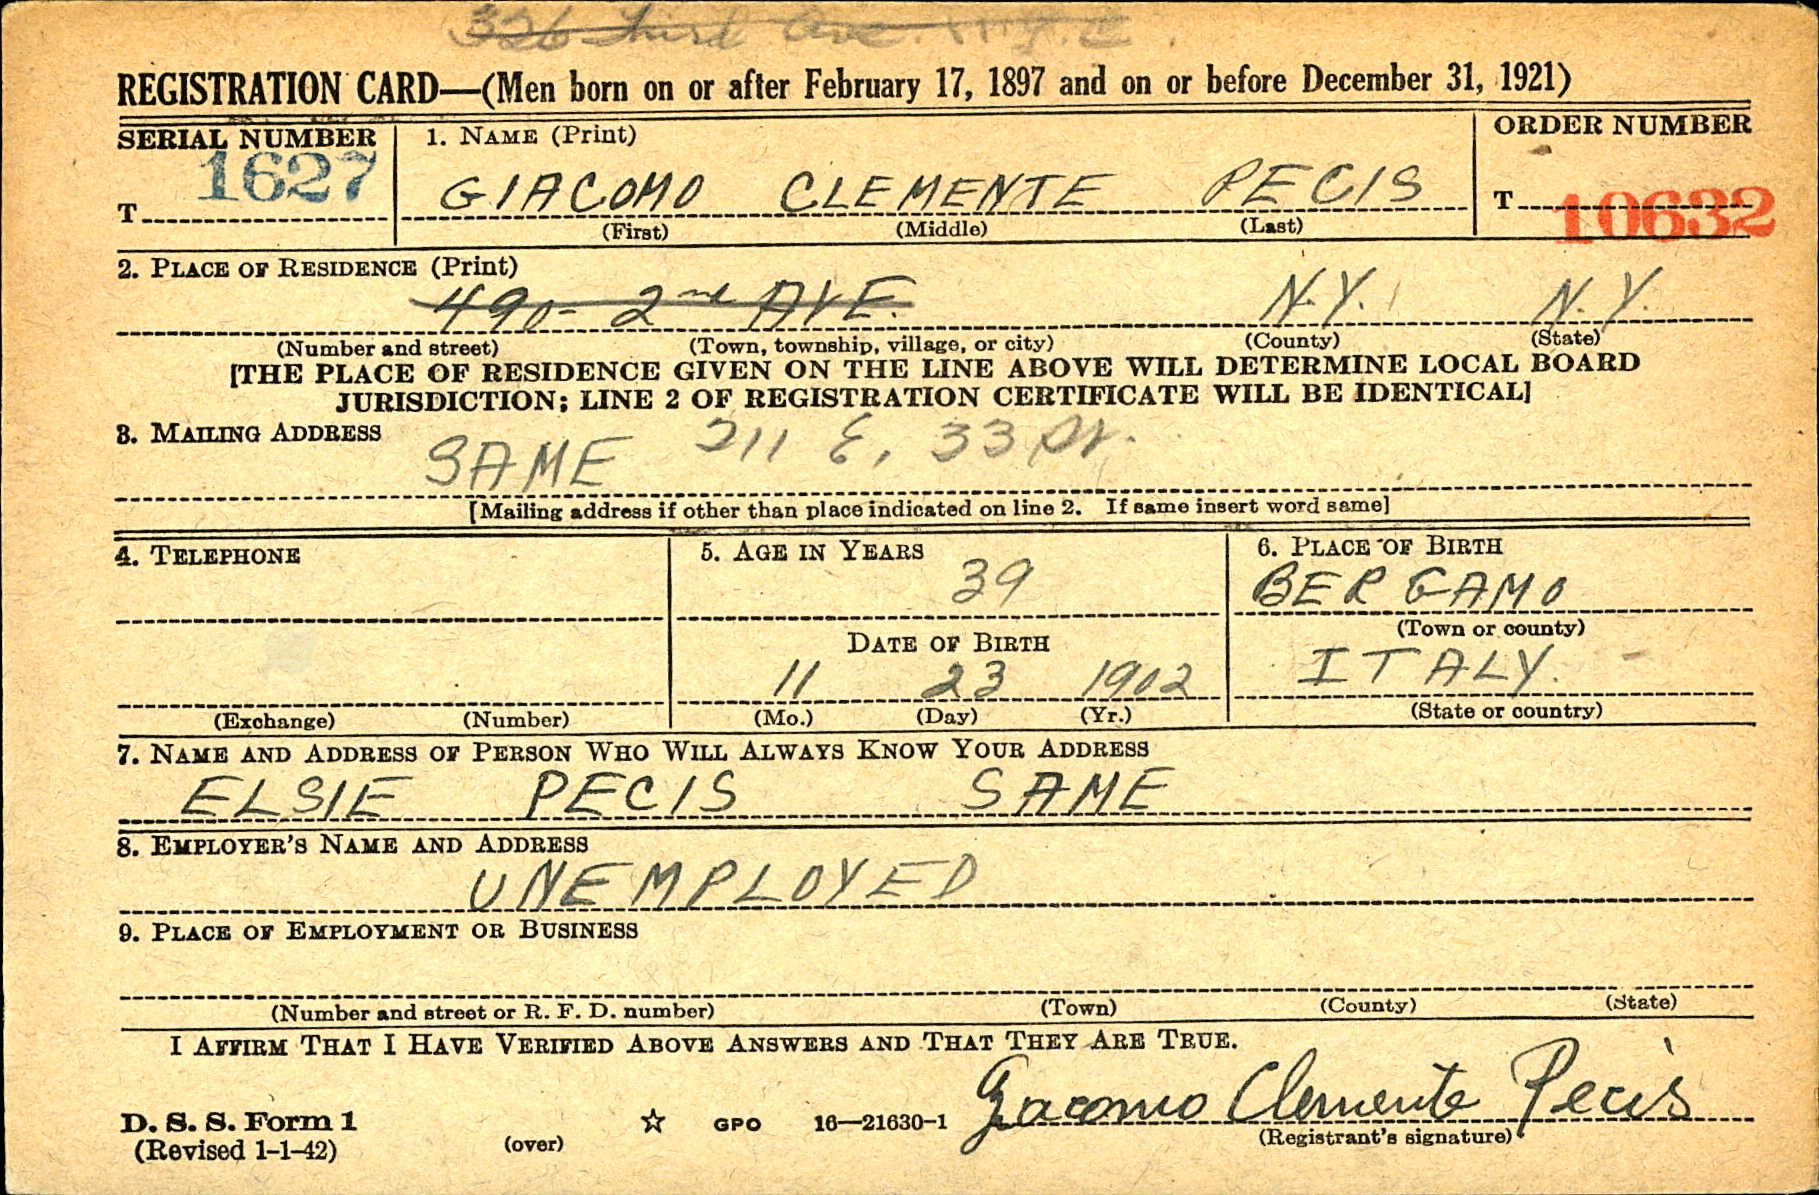 326 Third Ave. N.Y.C.
REGISTRATION CARD—(Men born on or after February 17, 1897 and on or before December 31, 1921)
SERIAL NUMBER 1. NAME (Print) ORDER NUMBER
T 1627 GIACOMO CLEMENTE PECIS T 10632
(First) (Middle) (Last)
2. PLACE OF RESIDENCE (Print)
490- 2nd AVE. N.Y. N.Y.
(Number and street) (Town, township, village, or city) (County) (State)
[THE PLACE OF RESIDENCE GIVEN ON THE LINE ABOVE WILL DETERMINE LOCAL BOARD
JURISDICTION; LINE 2 OF REGISTRATION CERTIFICATE WILL BE IDENTICAL]
3. MAILING ADDRESS
SAME 211 E. 33 St.
[Mailing address if other than place indicated on line 2. If same insert word same]
4. TELEPHONE 5. AGE IN YEARS 6. PLACE OF BIRTH
39 BERGAMO
(Town or county)
DATE OF BIRTH
11 23 1902 ITALY.
(Exchange) (Number) (Mo.) (Day) (Yr.) (State or country)
7. NAME AND ADDRESS OF PERSON WHO WILL ALWAYS KNOW YOUR ADDRESS
ELSIE PECIS SAME
8. EMPLOYER'S NAME AND ADDRESS
UNEMPLOYED
9. PLACE OF EMPLOYMENT OR BUSINESS
(Number and street or R. F. D. number) (Town) (County) (State)
I AFFIRM THAT I HAVE VERIFIED ABOVE ANSWERS AND THAT THEY ARE TRUE.
Giacomo Clemente Pecis
D. S. S. Form 1 ☆ GPO 16—21630-1
(Revised 1-1-42) (over) (Registrant's signature)